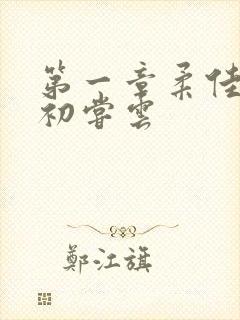 第一章柔佳
初嘗雲
鄭江旗